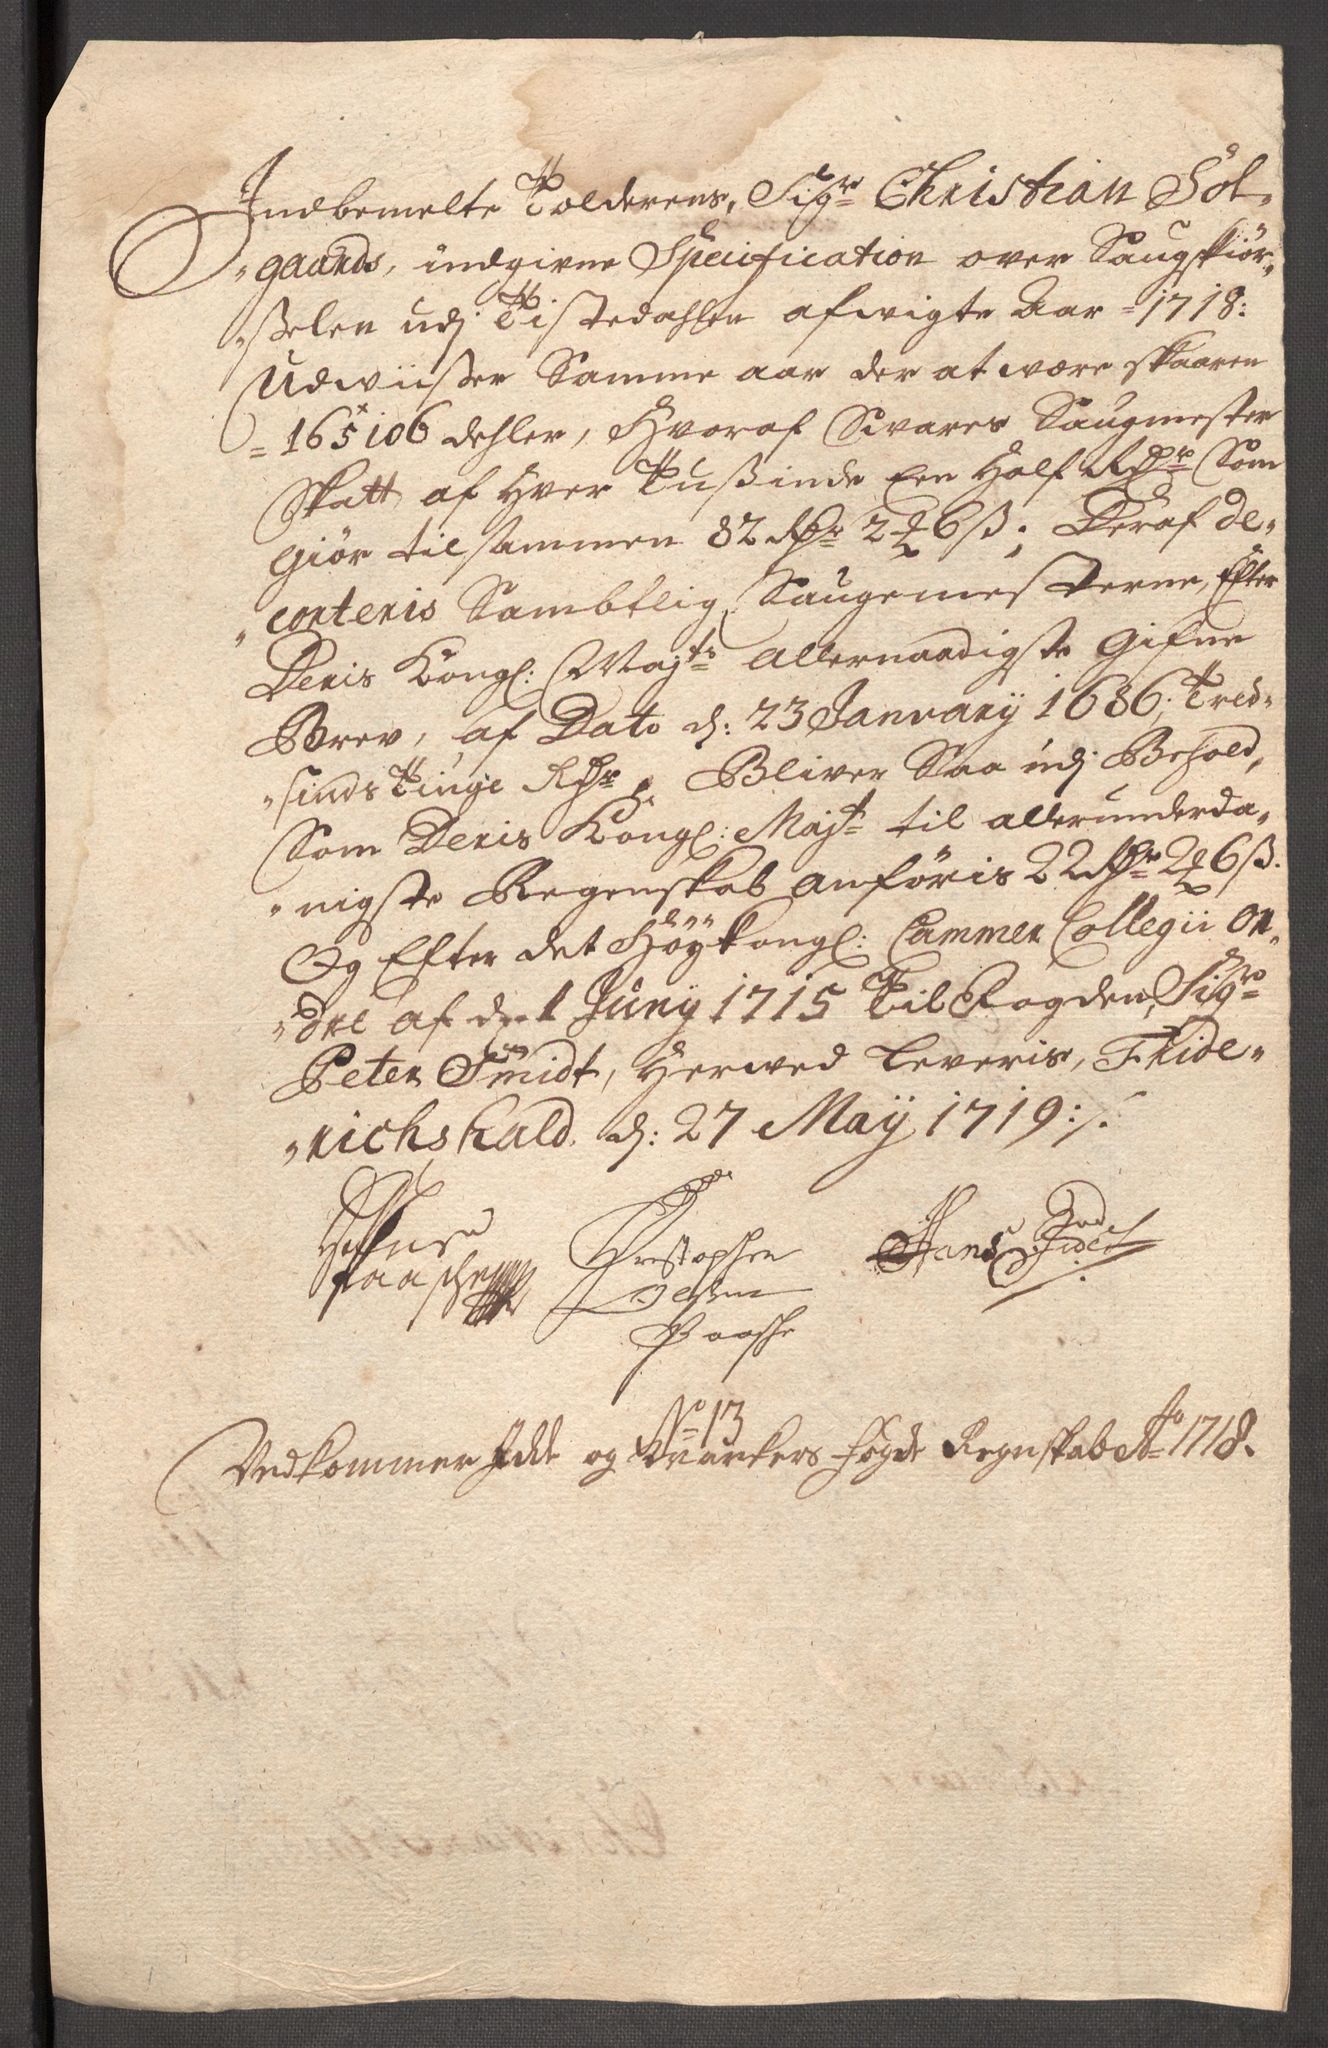 Indbemelte Tolderens, Sigr Christian Sol-
"gaards, indgivne Specification over Saugskiör-
"sselen udj Tistedahlen afvigte Aar =1718:
Udwiisser Samme aar der at være skaaren
=165106 dehler, Hvoraf Svares Saugmester
Skatt af hver Tussinde Een Half Rdr Som
giör tilsammen 82 Rdr 2 ₰ 6 ß; Deraf de-
"corteris Sambtlig Saugemesterne, Efter
Deris Kongl: Majts allernaadigste Gifne
Brev, af Dato d: 23 January 1686; Tred-
"sinds Tinge Rdr, Bliver Saa udj Behold,
Som Deris Kongl: Majt til allerunderda-
"nigste Regenskab anföris 22 Rdr 2 ₰ 6 ß.
Og Efter det Höykongl: Cammer Collegii Or-
"dre af d: 1 Juny 1715 Til Fogden, Sigr
Peter Smidt, Herved Leveris, Fride-
"richshald d: 27 Maÿ 1719:/.
Christopher
Hans
Olsen
Paasche
Paasche
No 13
Vedkommer Idde og Markers Fogde Regnskab Ao 1718.